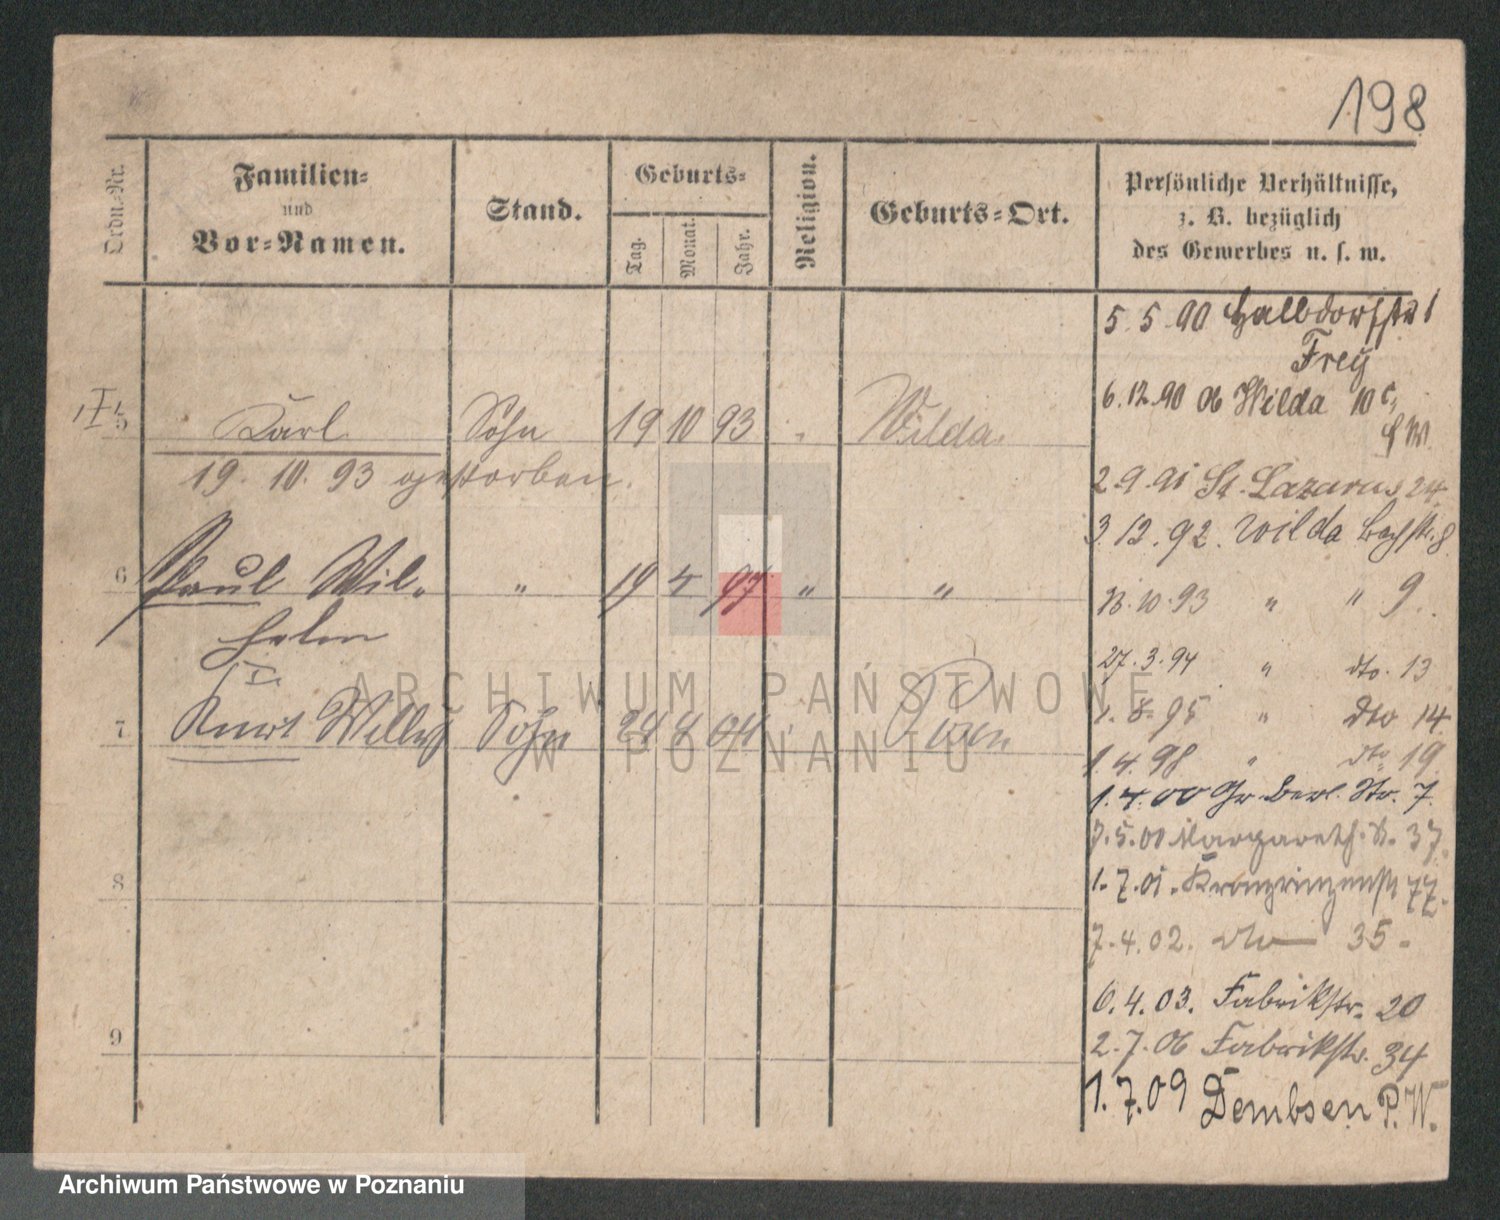 198
Ordn.-Nr.
Familien-
und
Vor-Namen.
Stand.
Geburts-
Tag.
Monat.
Jahr.
Religion.
Geburts-Ort.
Persönliche Verhältnisse,
z. B. bezüglich
des Gewerbes u. s. w.
5 Karl Sohn 19 10 93 Wilda
19. 10. 93 gestorben.
6 Paul Wil- " 19 4 97 " "
helm
7 Kurt Willy Sohn 24 8 04 Posen
8
9
5. 5. 90 Halbdorfstr 1
Frey
6. 12. 90 ob Wilda 10
2. 9. 91 St. Lazarus 24
3. 12. 92. Wilda Bachstr. 8
13. 10. 93 " " 9.
27. 3. 94 " dto. 13
1. 8. 95 " dto 14.
1. 4. 98 " dto 19
1. 4. 00 Gr. Berl. Str. 7.
7. 5. 00 Margareth. St. 37.
1. 7. 01. Kronprinzenstr 77.
7. 4. 02. dto 35.
6. 4. 03. Fabrikstr. 20
2. 7. 06 Fabrikstr. 34
1. 7. 09 Dembsen P. W.
ARCHIWUM PAŃSTWOWE
W POZNANIU
Archiwum Państwowe w Poznaniu